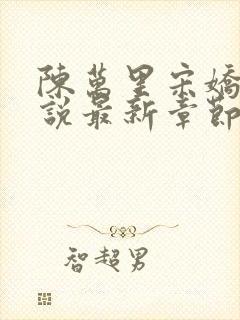 陳萬里宋嬌
說最新章節
智超男